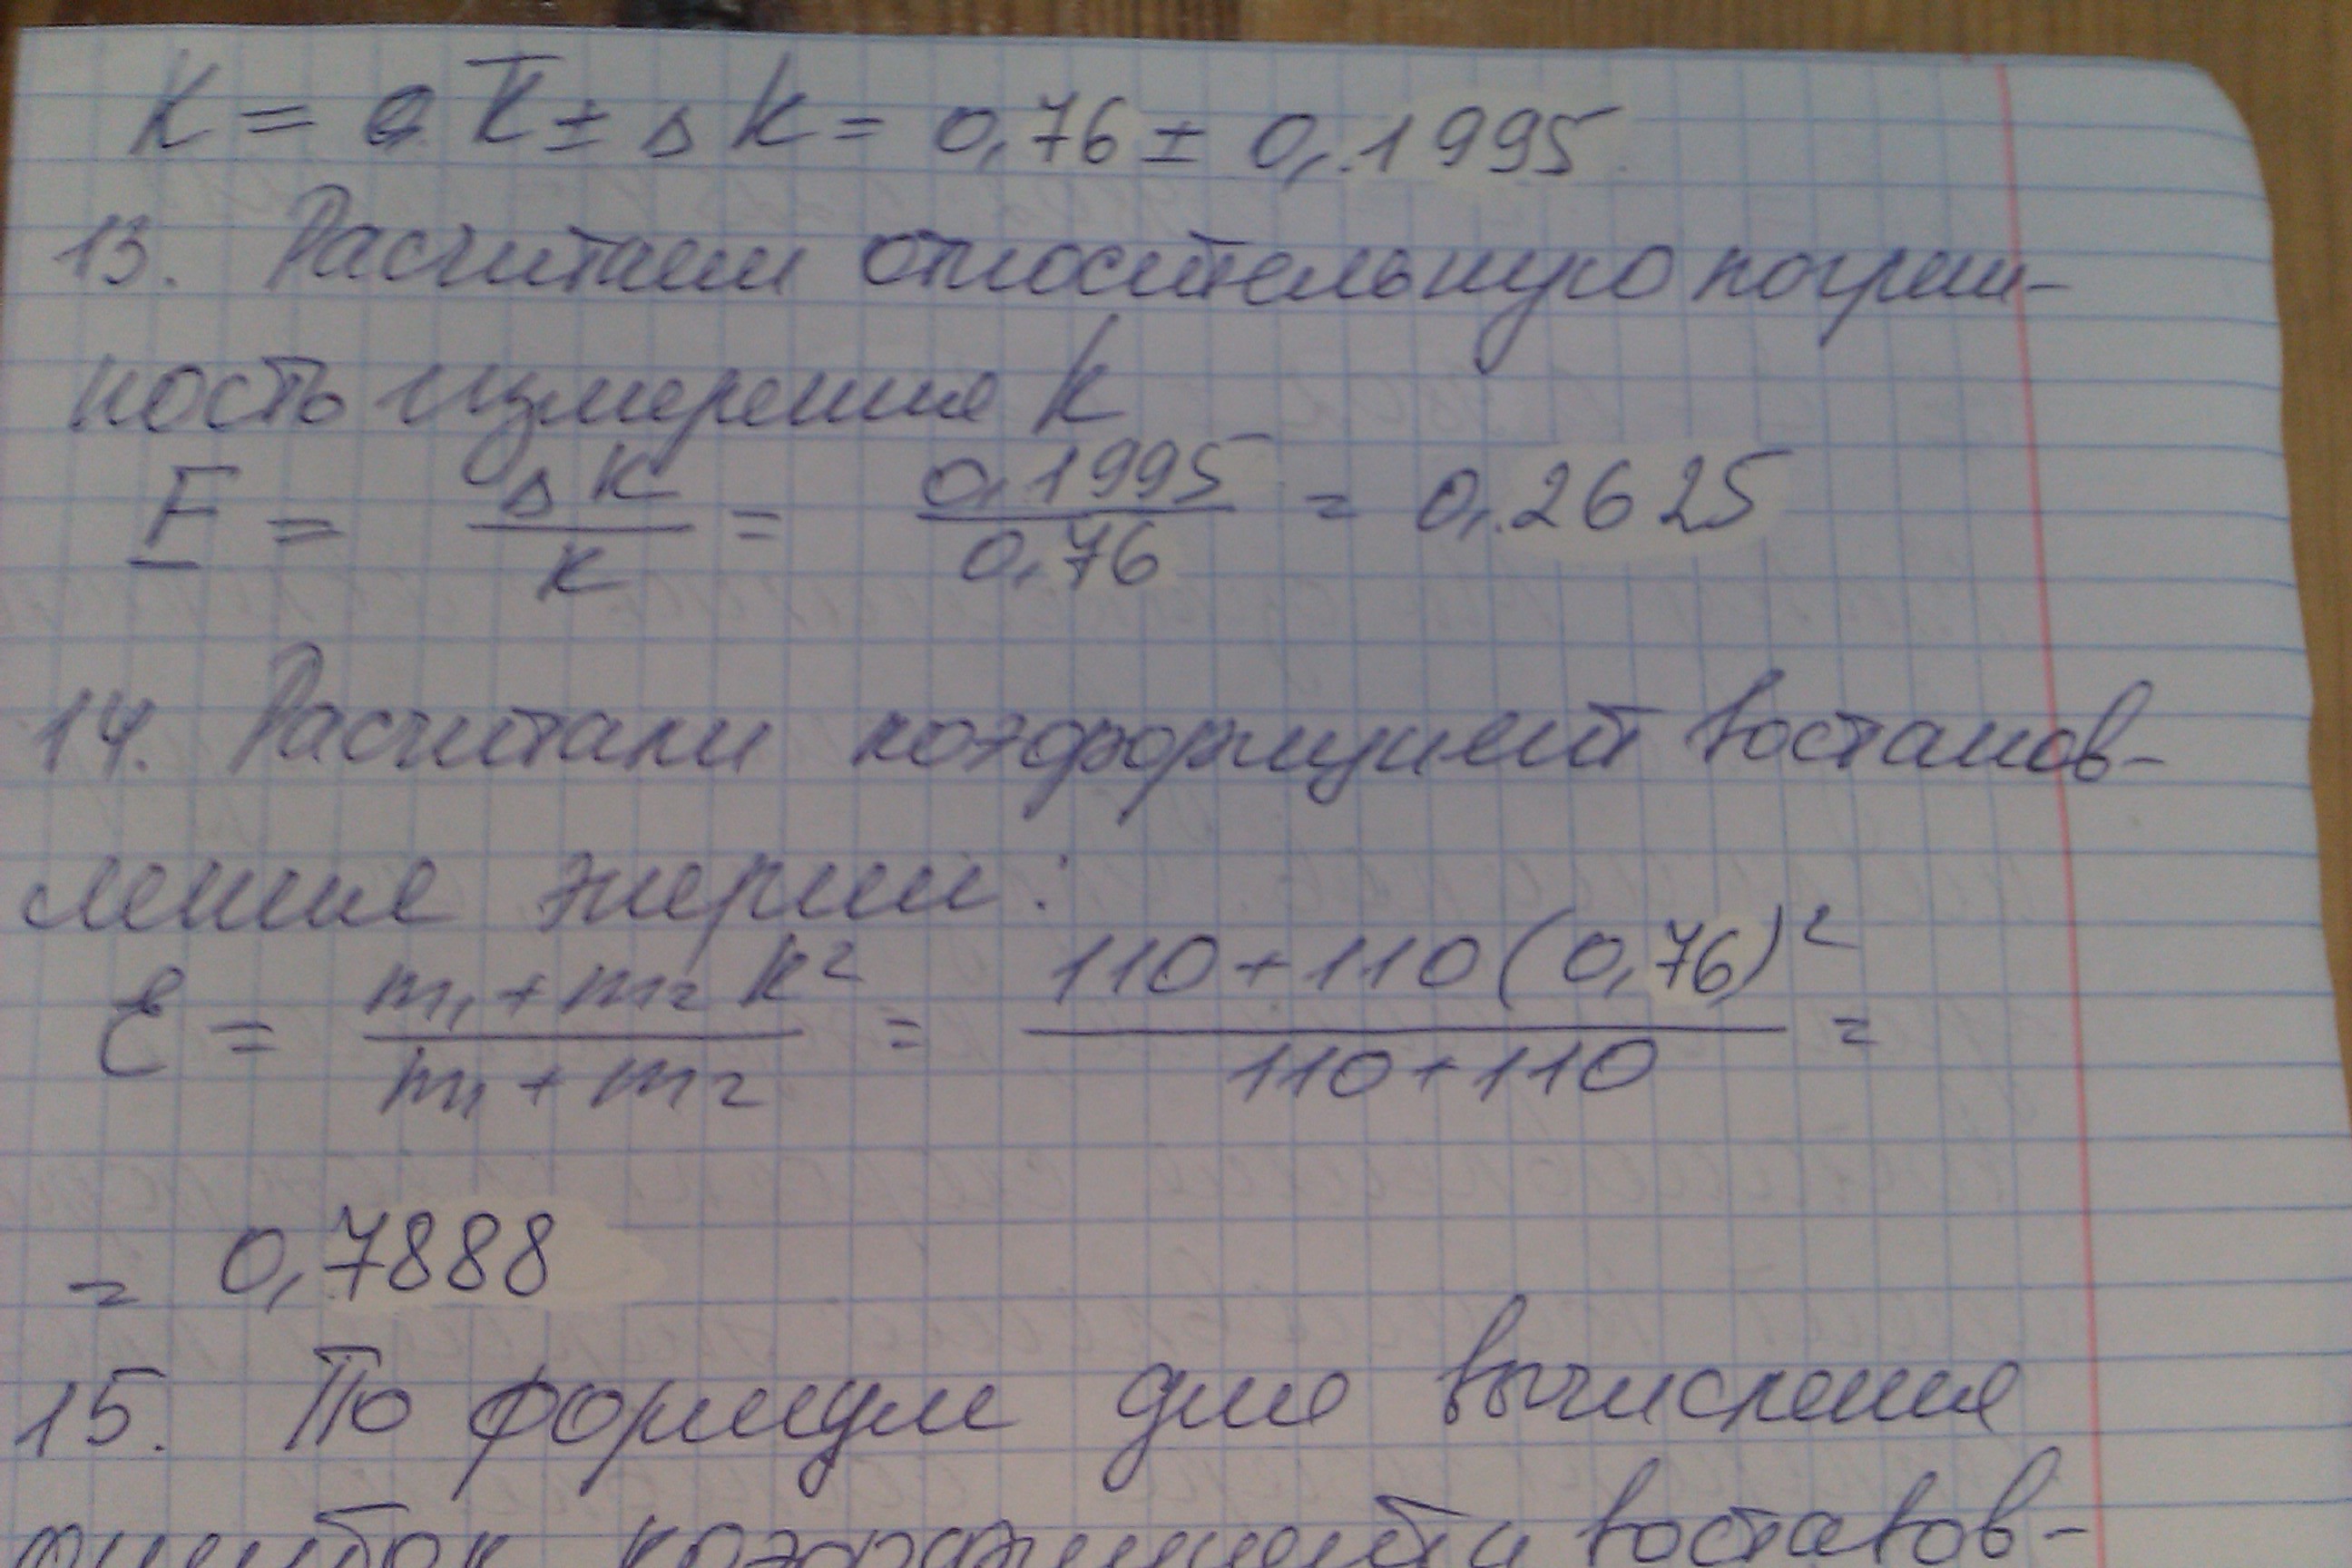 K = K̄ ± Δ K = 0,76 ± 0,1995
13. Расчитаем относительную погреш-
ность измерения k
E = ΔK/K = 0,1995/0,76 = 0,2625
14. Расчитали коэффициент востанов-
ления энергии:
Ɛ = (m₁ + m₂ k²)/(m₁ + m₂) = (110 + 110 (0,76)²)/(110 + 110) =
= 0,7888
15. По формулы для вычисления
ошибок коэффициента востанов-